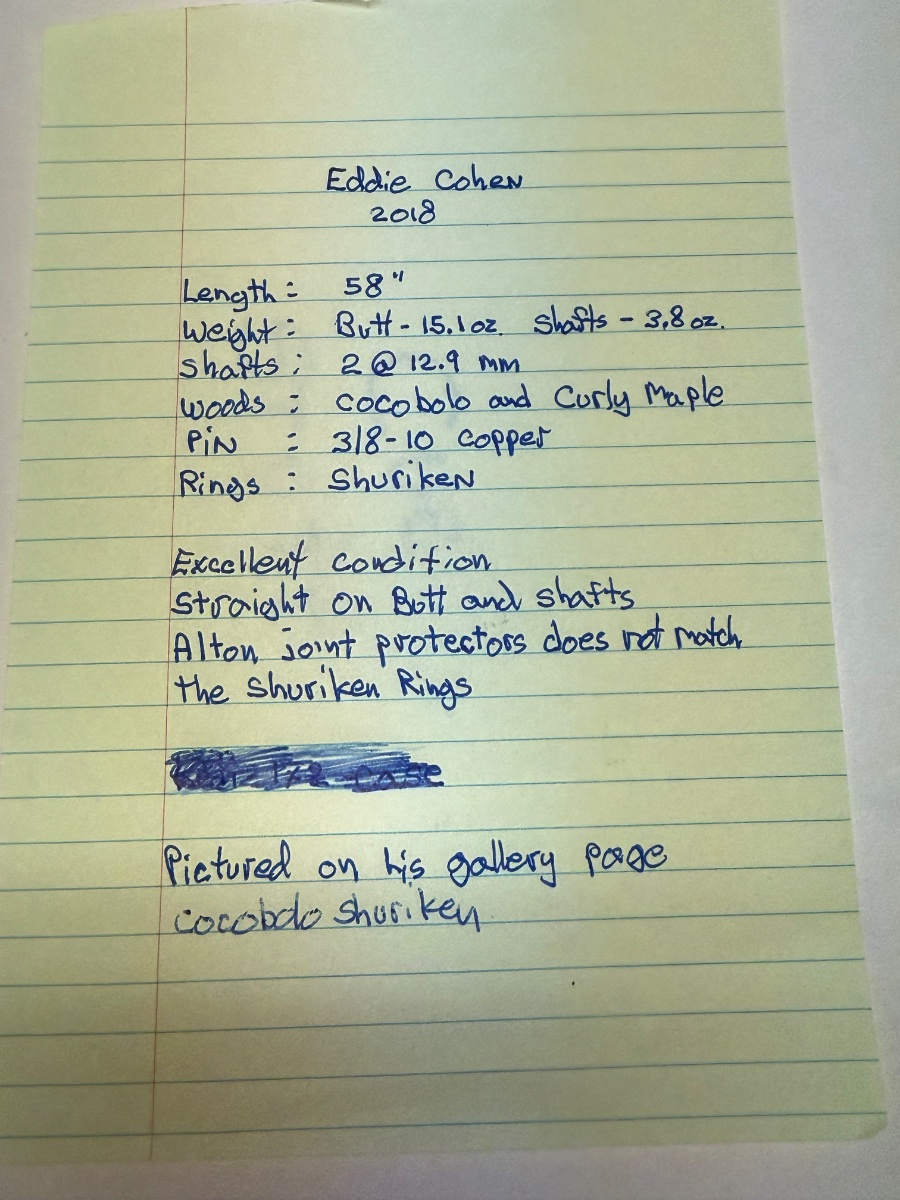 Eddie Cohen
2018
Length : 58"
Weight : Butt - 15.1 oz. Shafts - 3.8 oz.
Shafts : 2 @ 12.9 mm
Woods : Cocobolo and Curly Maple
Pin : 3/8-10 Copper
Rings : Shuriken
Excellent condition
Straight on Butt and shafts
Alton joint protectors does not match
the Shuriken Rings
1x2 case
Pictured on his gallery page
Cocobolo Shuriken